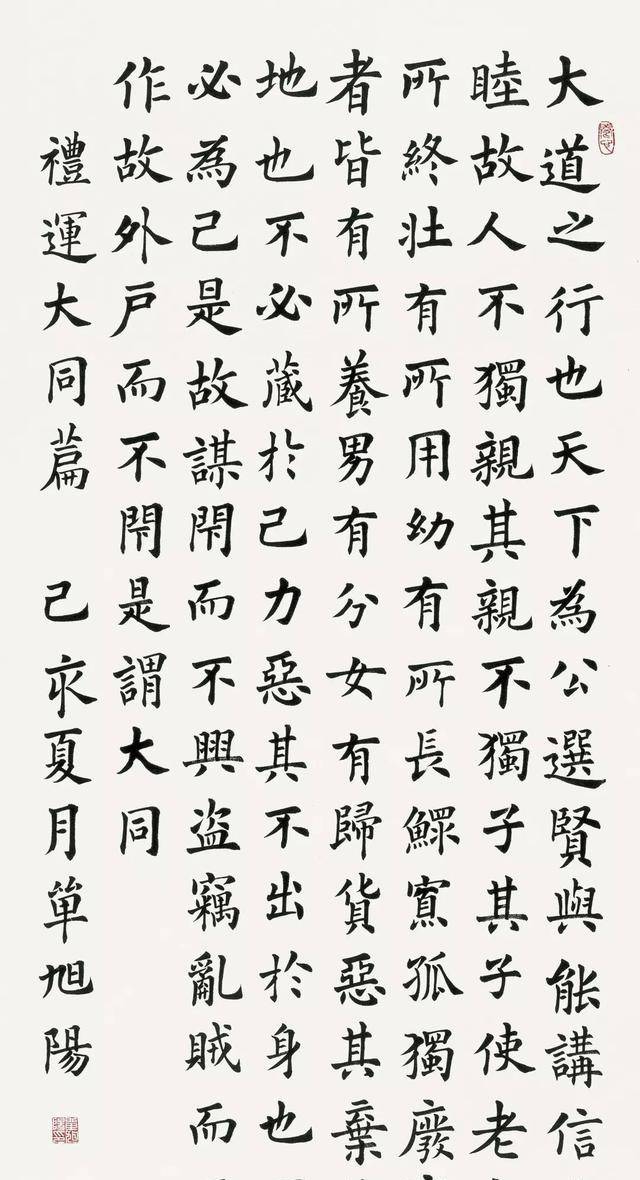 大道之行也天下為公選賢與能講信
睦故人不獨親其親不獨子其子使老
所終壯有所用幼有所長鰥寡孤獨廢
者皆有所養男有分女有歸貨惡其棄
地也不必藏於己力惡其不出於身也
必為己是故謀閉而不興盜竊亂賊而
作故外戶而不閉是謂大同
禮運大同篇 己亥夏月單旭陽